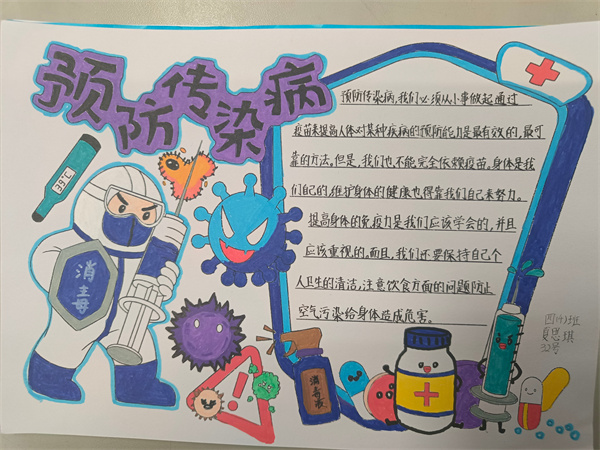 预防传染病
39℃
消毒
预防传染病,我们必须从小事做起通过
疫苗来提高人体对某种疾病的预防能力是最有效的,最可
靠的方法。但是,我们也不能完全依赖疫苗。身体是我
们自己的,维护身体的健康也得靠我们自己来努力。
提高身体的免疫力是我们应该学会的,并且
应该重视的。而且,我们还要保持自己个
人卫生的清洁,注意饮食方面的问题防止
空气污染给身体造成危害。
消毒液
夏思琪
32号